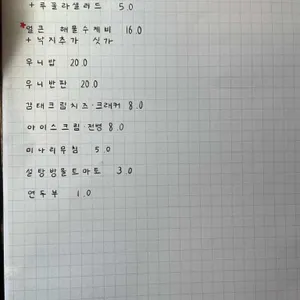 + 루꼴라샐러드 5.0
*얼큰 해물수제비 16.0
+ 낙지추가 싯가
우니밥 20.0
우니반판 20.0
감태크림치즈·크래커 8.0
아이스크림·전병 8.0
미나리무침 5.0
설탕방울토마토 3.0
연두부 1.0